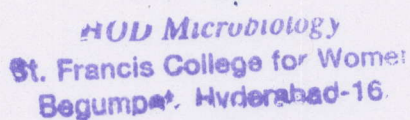 HOD Microbiology
St. Francis College for Women
Begumpet, Hyderabad-16.